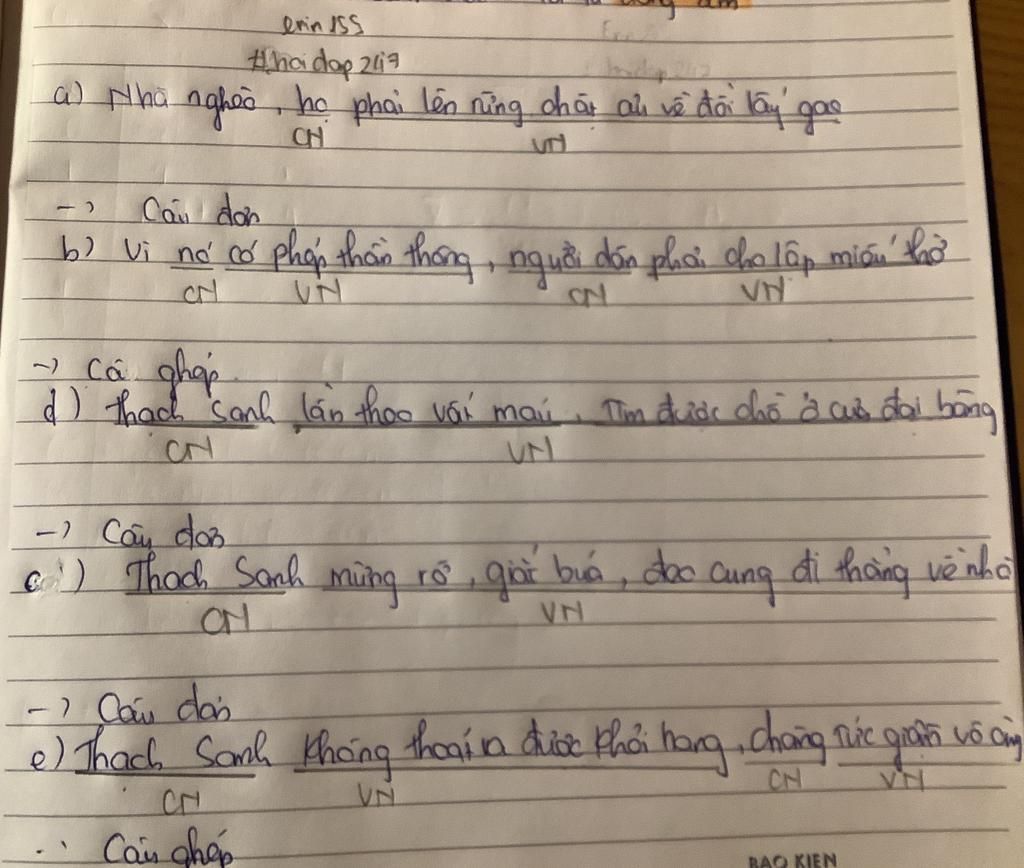 erin155
#hoidap247
a) Nhà nghèo, họ phải lên rừng chặt củi về đổi lấy gạo
CN VN
-> Câu đơn
b) Vì nó có phép thần thông, người dân phải cho lập miếu thờ
CN VN CN VN
-> Câ ghép
d) Thạch Sanh lần theo vết máu, tìm được chỗ ở của đại bàng
CN VN
-> Câu đơn
c) Thạch Sanh mừng rỡ, giắt búa, đeo cung đi thẳng về nhà
CN VN
-> Câu đơn
e) Thạch Sanh không thoát ra được khỏi hang, chàng tức giận vô cùng
CN VN CN VN
Câu ghép
BAO KIEN